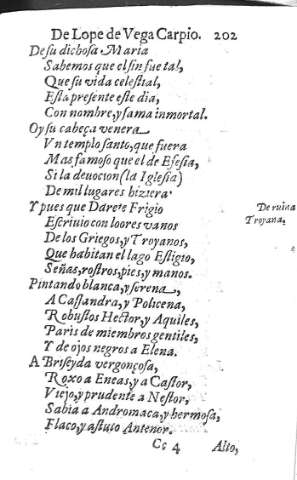 De Lope de Vega Carpio. 202
De su dichosa Maria
Sabemos que el fin fue tal,
Que su vida celestial,
Està presente este dia,
Con nombre, y fama inmortal.
Oy su cabeça venera
Vn templo santo, que fuera
Mas famoso que el de Efesia,
Si la deuocion (la Iglesia)
De mil lugares hiziera
Y pues que Darete Frigio
Escriuio con loores vanos
De los Griegos, y Troyanos,
Que habitan el lago Estigio,
Señas, rostros, pies, y manos.
De ruina
Troyana.
Pintando blanca, y serena,
A Cassandra, y Policena,
Robustos Hector, y Aquiles,
Paris de miembros gentiles,
Y de ojos negros a Elena.
A Briseyda vergonçosa,
Roxo a Eneas, y a Castor,
Viejo, y prudente a Nestor,
Sabia a Andromaca, y hermosa,
Flaco, y astuto Antenor.
Cc 4 Alto,